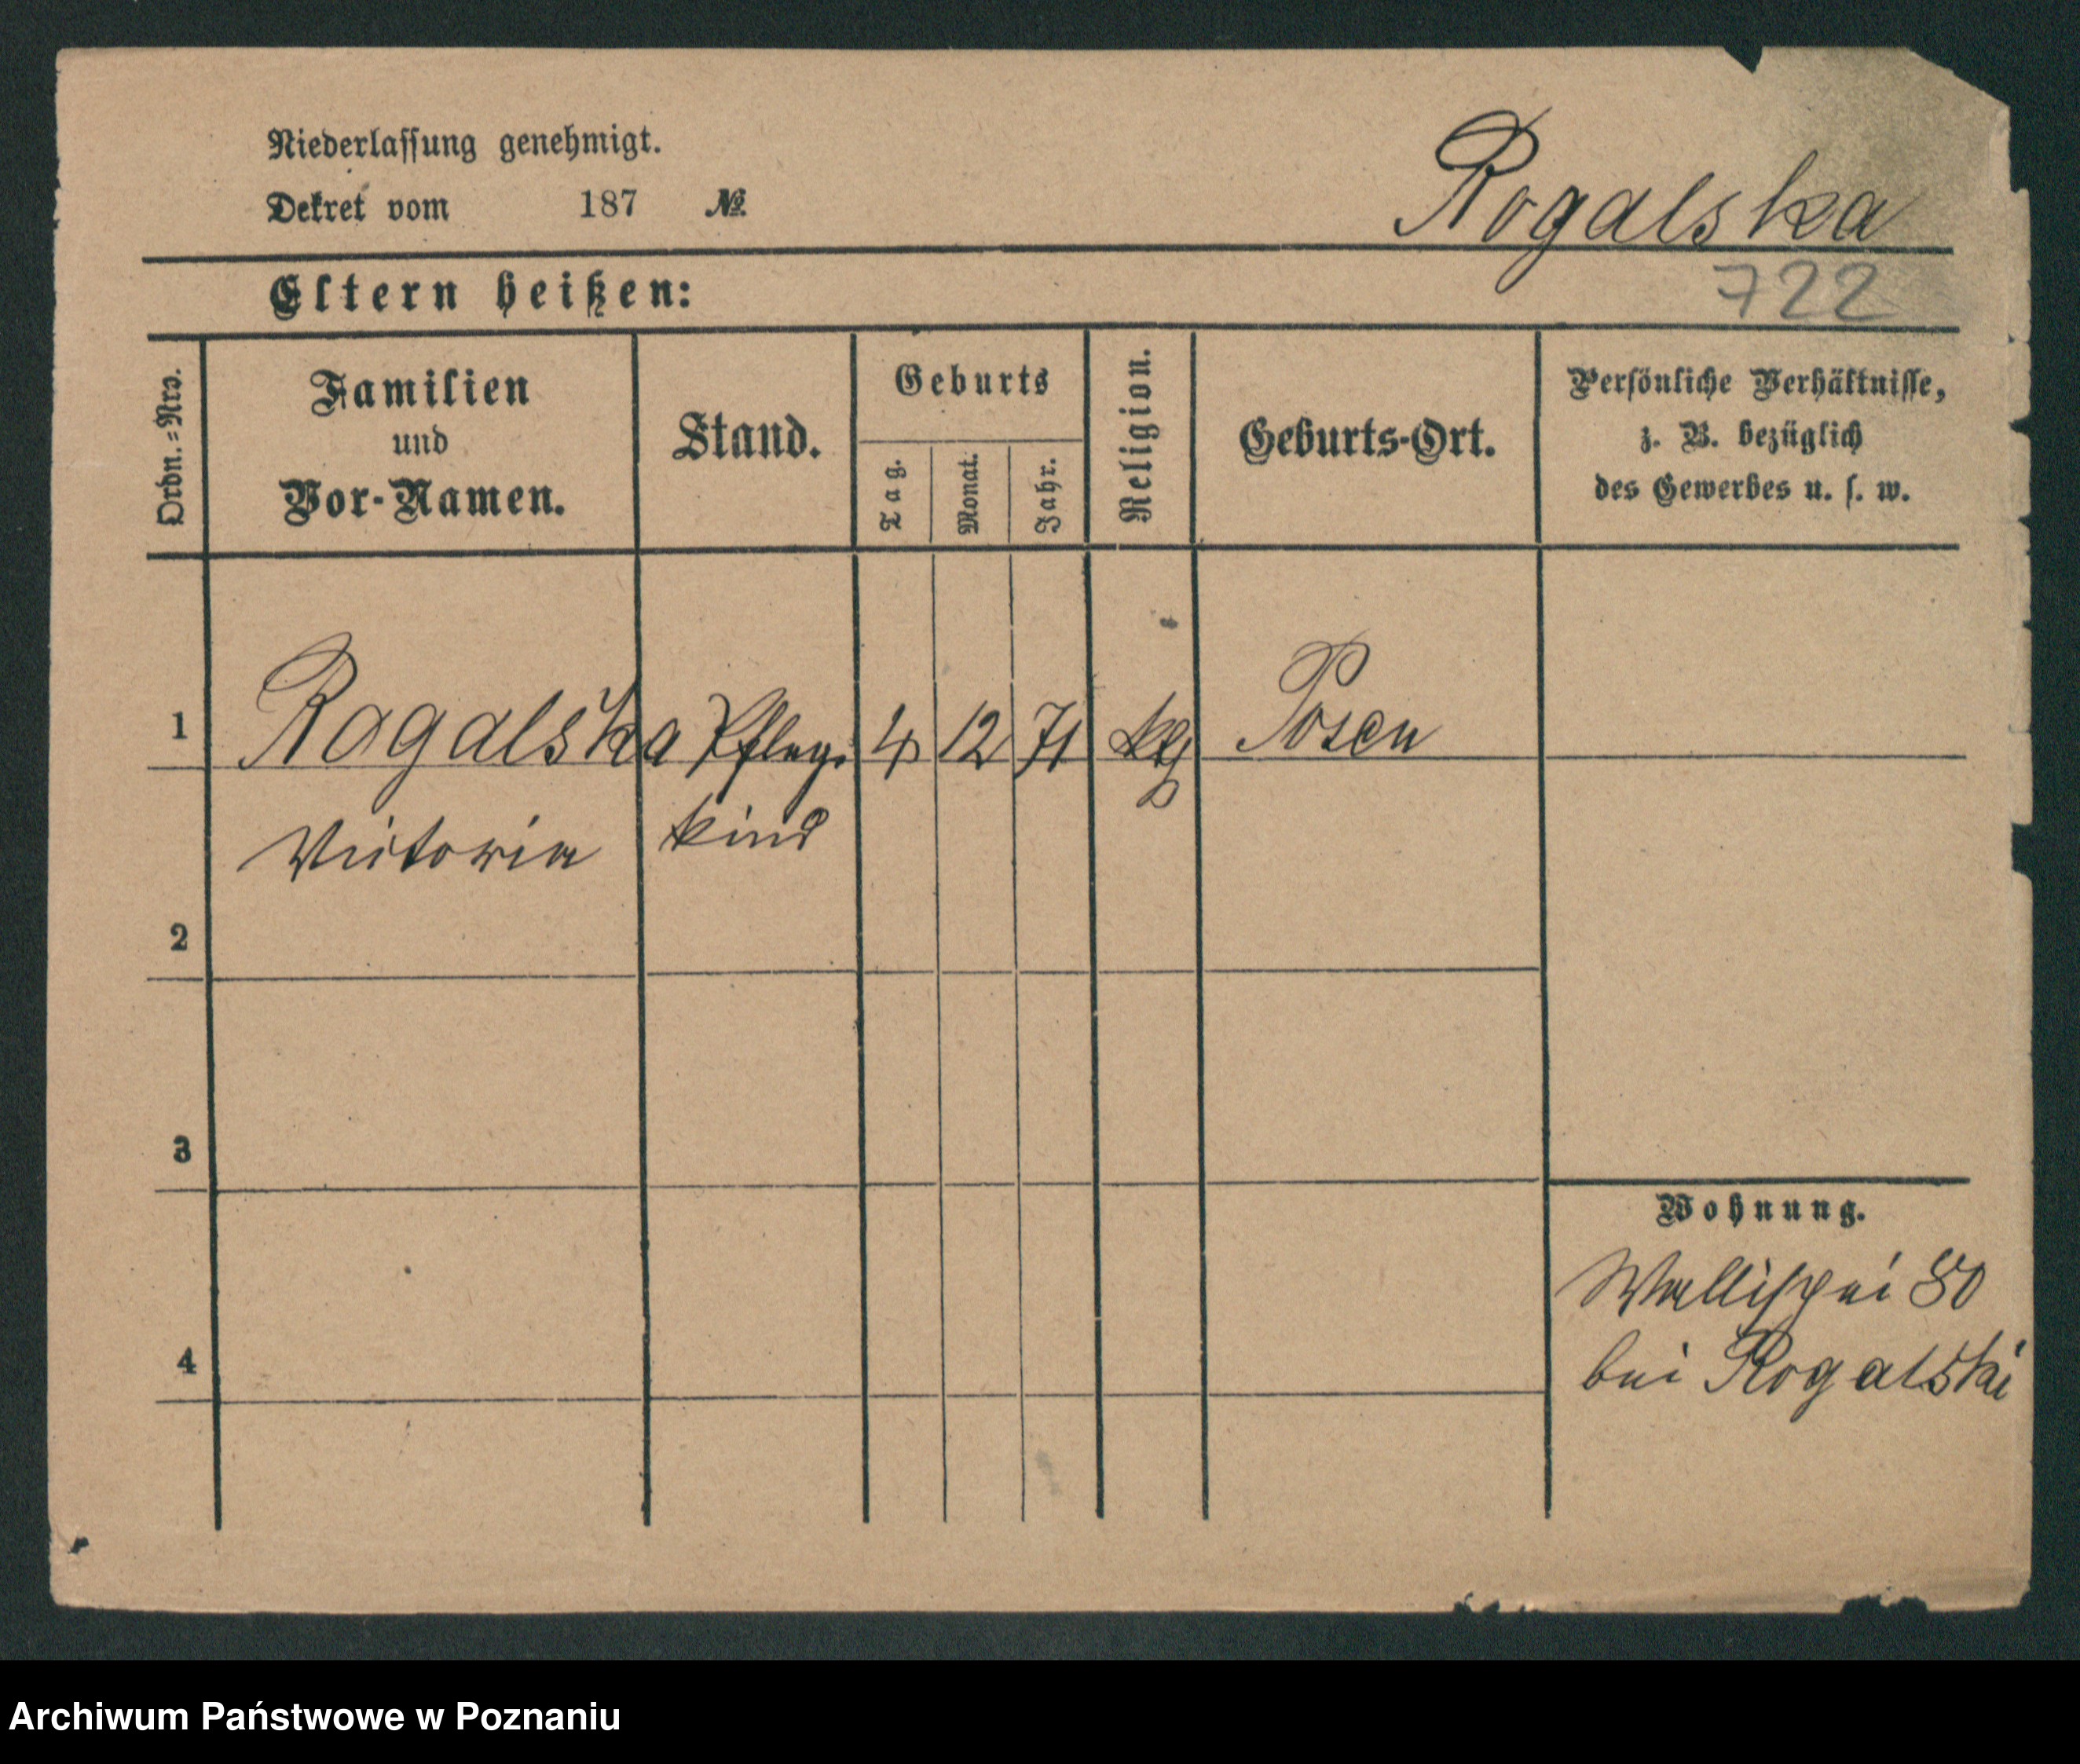 Niederlassung genehmigt.
Dekret vom 187 №
Rogalska
722
Eltern heißen:
Ordn.=Nro.
Familien
und
Vor-Namen.
Stand.
Geburts
Tag.
Monat.
Jahr.
Religion.
Geburts-Ort.
Persönliche Verhältnisse,
z. B. bezüglich
des Gewerbes u. s. w.
1 Rogalska Pflege 4 12 71 ktl Posen
Victoria kind
2
3
4
Wohnung.
Wallischei 80
bei Rogalski
Archiwum Państwowe w Poznaniu